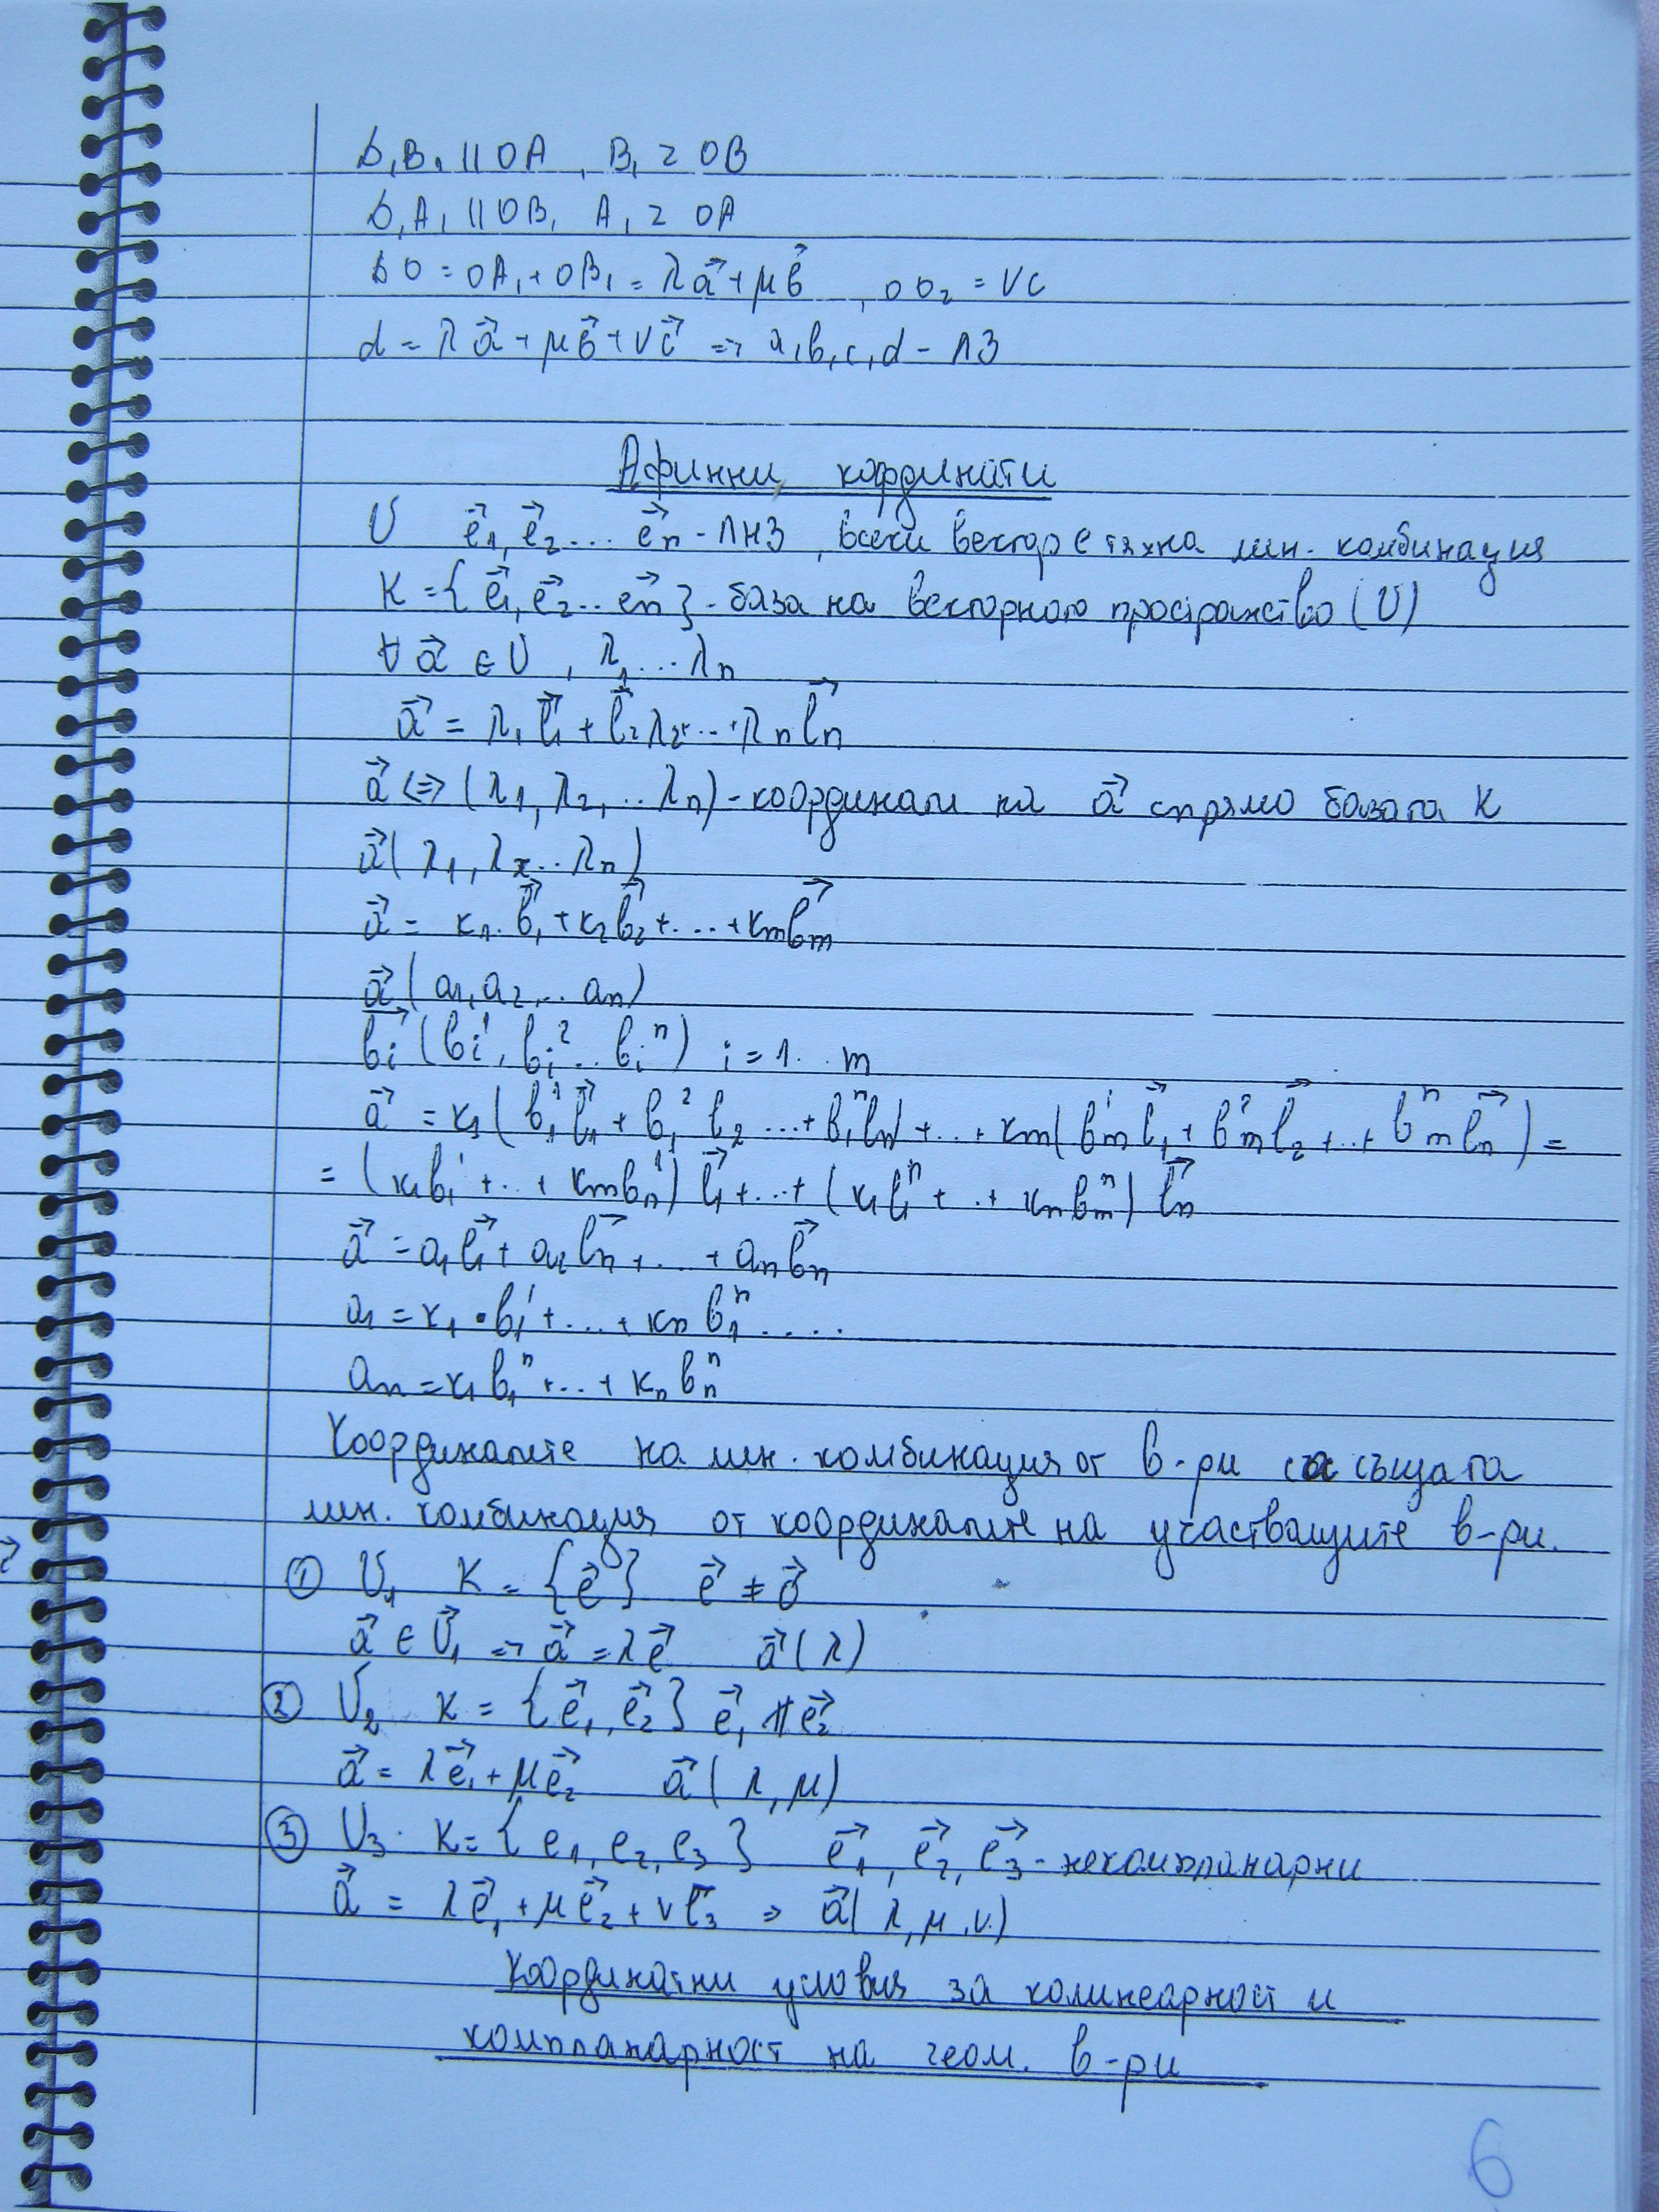 D₁B₁ || OA , B₁ z OB
D₁A₁ || OB, A₁ z OA
DO = OA₁ + OB₁ = λa⃗ + μb⃗ , OO₂ = νc
d = λa⃗ + μb⃗ + νc⃗ => a, b, c, d - ЛЗ
Афинни координати
U e⃗₁, e⃗₂ ... e⃗n - ЛНЗ , всеки вектор е тяхна лин. комбинация
K = {e⃗₁, e⃗₂ .. e⃗n} - база на векторното пространство (U)
∀ a⃗ ∈ U , λ₁ ... λn
a⃗ = λ₁l⃗₁ + l⃗₂λ₂ + ... + λn l⃗n
a⃗ <=> (λ₁, λ₂, .. λn) - координати на a⃗ спрямо базата K
a⃗ (λ₁, λ₂ .. λn)
a⃗ = k₁. b⃗₁ + k₂b⃗₂ + ... + kmb⃗m
a⃗ (a₁, a₂, .. an)
b⃗i (bi¹, bi² .. biⁿ) i = 1 .. m
a⃗ = k₁ (b₁¹l⃗₁ + b₁²l₂ ... + b₁ⁿln) + .. + km (bm¹l⃗₁ + bm²l⃗₂ + .. + bmⁿl⃗n) =
= (k₁b₁¹ + .. + kmbn¹) l⃗₁ + ... + (k₁l₁ⁿ + .. + knbmⁿ) l⃗n
a⃗ = a₁l⃗₁ + a₂l⃗n + ... + anb⃗n
a₁ = k₁ • b₁¹ + ... + kn b₁ⁿ ....
an = k₁b₁ⁿ + .. + kn bnⁿ
Координатите на лин. комбинация от в-ри са същата
лин. комбинация от координатите на участващите в-ри.
① U₁ K = {e⃗} e⃗ ≠ o⃗
a⃗ ∈ U⃗₁ => a⃗ = λe⃗ a⃗ (λ)
② U₂ K = {e⃗₁, e⃗₂} e⃗₁ ∦ e⃗₂
a⃗ = λe⃗₁ + μe⃗₂ a⃗ (λ, μ)
③ U₃. K = {e₁, e₂, e₃} e⃗₁, e⃗₂, e⃗₃ - некомпланарни
a⃗ = λe⃗₁ + μe⃗₂ + νl⃗₃ => a⃗ (λ, μ, ν)
Координатни условия за колинеарност и
компланарност на геом. в-ри
6